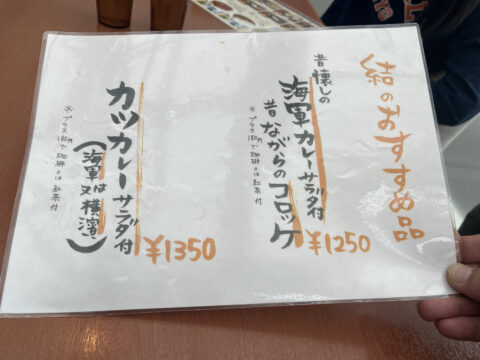 結のおすすめ品
昔懐しの
海軍カレーサラダ付
昔ながらのコロッケ
¥1250
※プラス180円で珈琲又は紅茶付
カツカレーサラダ付
(海軍又は横濱)
¥1350
※プラス180円で珈琲又は紅茶付